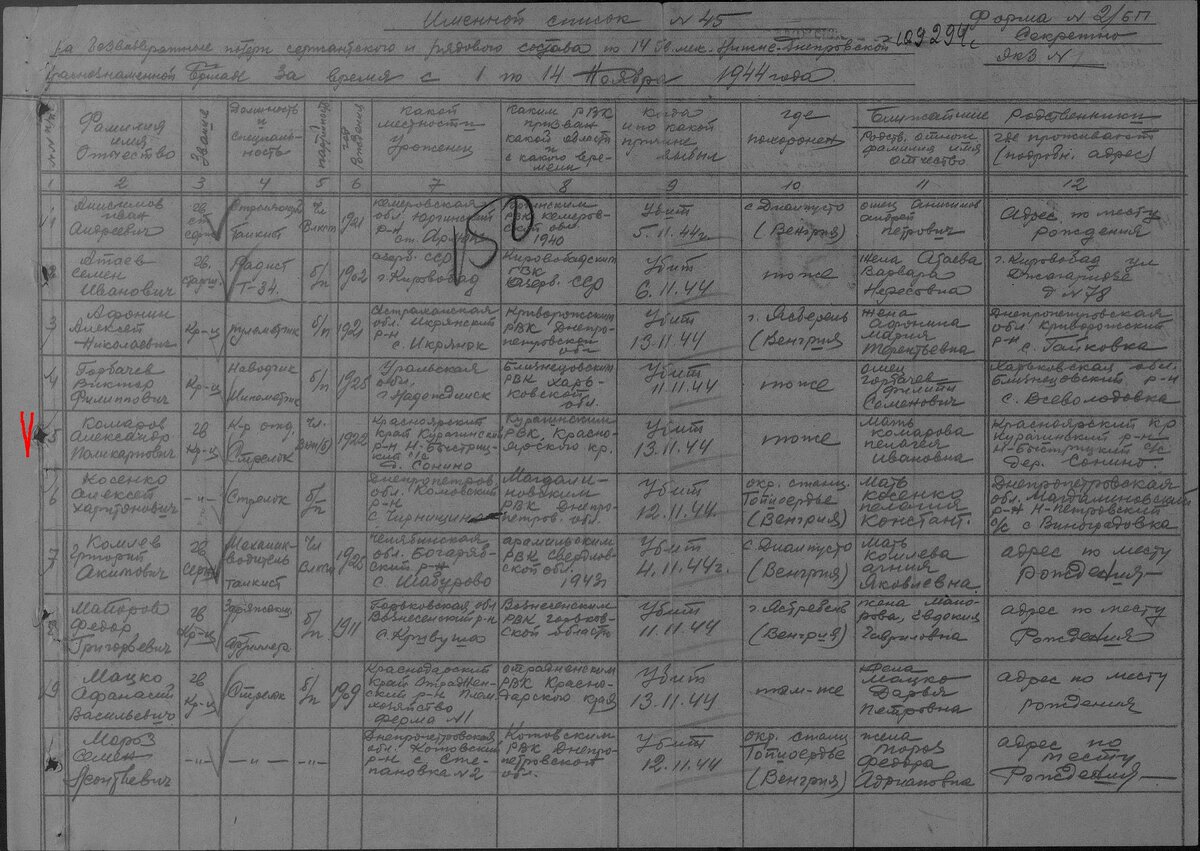 Именной список № 45
Форма № 2/БП
Секретно
экз № 1
109294с
на безвозвратные потери сержантского и рядового состава по 14 гв. мех. Нижне-Днепровской
Краснознаменной Бригаде за время с 1 по 14 Ноября 1944 года.
№№ п/п
Фамилия имя Отчество
Звание
Должность и специальность
партийность
год рождения
Какой местности Уроженец
Каким РВК призван какой области и с какого времени
Когда и по какой причине выбыл
где похоронен
Ближайшие Родственники
Родств. отнош. фамилия имя отчество
где проживают (подробн. адрес)
1 2 3 4 5 6 7 8 9 10 11 12
150
1 Анисимов Иван Андреевич гв. ст. серж Танкист Чл Влксм 1921 Кемеровская обл. Юргинский р-н ст. Юргинским РВК Кемеровской обл. 1940 Убит 5.11.44г с. Диалпусто (Венгрия) отец Анисимов Андрей Петрович Адрес по месту рождения
2 Атаев Семен Иванович гв. старш. Радист Т-34. б/п 1902 азерб. ССР г. Кировобад Кировобадским ГВК азерб. ССР Убит 6.11.44 тоже жена Атаева Варвара Нересовна г. Кировобад ул д № 78
3 Афонин Алексей Николаевич Кр-ц пулеметчик б/п 1921 Астраханская обл. Икрянский р-н с. Икрянок Криворожским РВК Днепропетровской обл Убит 13.11.44 г. Ясберень (Венгрия) жена Афонина Мария Терентьевна Днепропетровская обл Криворожский р-н с. Гайковка
4 Горбачев Виктор Филиппович Кр-ц Наводчик Минометчик б/п 1925 Уральская обл. г. Надеждинск Близнецовским РВК Харьковской обл. Убит 11.11.44 тоже отец Горбачев Филипп Семенович Харьковская обл. Близнецовский р-н с. Всеволодовка
5 Комаров Александр Поликарпович гв Кр-ц К-р отд. Стрелок Чл. Вкп(б) 1922 Красноярский край Курагинский р-н Н-Быстрицкий с/с д. Сонино Курагинским РВК Красноярского кр. Убит 13.11.44 тоже Мать Комарова Пелагея Ивановна Красноярский кр Курагинский р-н Н-Быстрицкий с/с дер. Сонино.
6 Косенко Алексей Харитонович -"- Стрелок б/п Днепропетров. обл. р-н с. Чернищина Магдалиновским РВК Днепропетров. обл. Убит 12.11.44 окр. станц. (Венгрия) Мать Косенко Пелагия Констант. Днепропетровская обл. Магдалиновский р-н Н-Петровский с/с с Виноградовка
7 Комлев Григорий Акимович гв Серж Механик-водитель танкист Чл Влксм 1925 Челябинская обл. Богарякский р-н с. Шабурово арамильским РВК Свердловской обл. 1943г Убит 4.11.44г. с. Диалпусто (Венгрия) Мать Комлева Яковлевна адрес по месту Рождения
8 Майоров Федор Григорьевич гв Кр-ц Заряжающ. б/п 1911 Горьковская обл Вознесенский р-н с. Кривуша Вознесенским РВК Горьковской области Убит 11.11.44 г. Ястребень (Венгрия) жена Майорова Евдокия Гавриловна адрес по месту Рождения
9 Мацко Афанасий Васильевич гв Кр-ц Стрелок б/п 1919 Краснодарский край Отрадненский р-н Плем хозяйство ферма № 1 отрадненским РВК Краснодарского края Убит 13.11.44 там-же Жена Мацко Дарья Петровна адрес по месту рождения
Мороз Семен Леонтиевич -"- -"- Днепропетровская обл. Котовский р-н с Степановка № 2 Котовским РВК Днепропетровской обл. Убит 12.11.44 окр. станц (Венгрия) жена Мороз Федора Адриановна адрес по месту Рождения